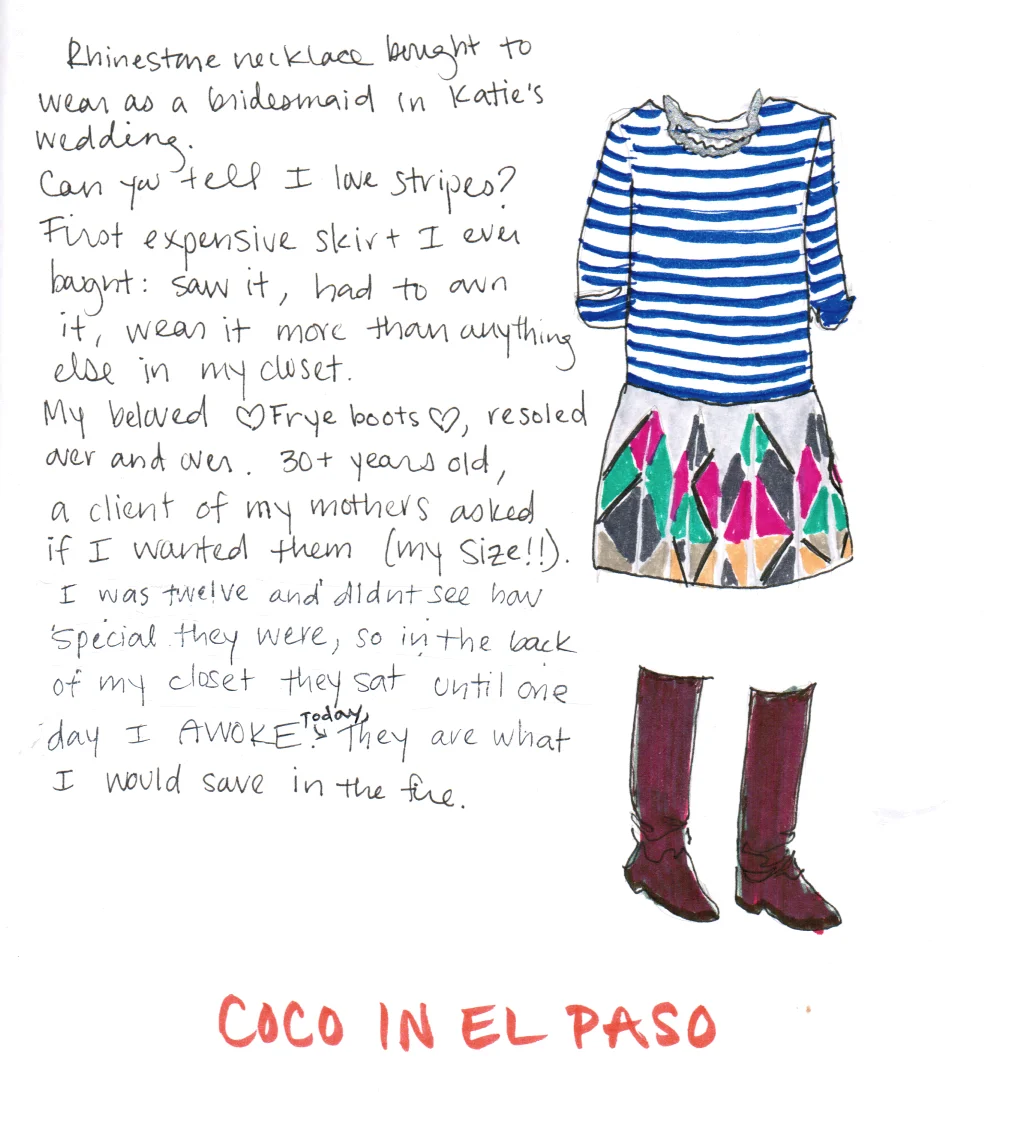 Rhinestone necklace bought to
wear as a bridesmaid in Katie's
wedding.
Can you tell I love stripes?
First expensive skirt I ever
bought: saw it, had to own
it, wear it more than anything
else in my closet.
My beloved ♡Frye boots♡, resoled
over and over. 30+ years old,
a client of my mothers asked
if I wanted them (my size!!).
I was twelve and didnt see how
special they were, so in the back
of my closet they sat until one
day I AWOKE. Today, They are what
I would save in the fire.
COCO IN EL PASO